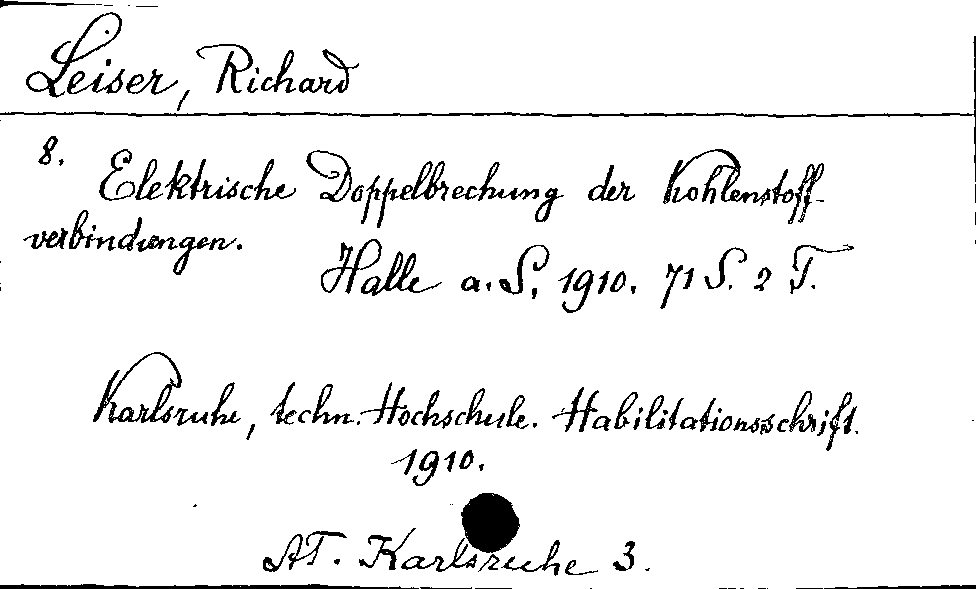 Leiser, Richard
8. Elektrische Doppelbrechung der Kohlenstoff-
verbindungen.
Halle a. S. 1910. 71 S. 2 T.
Karlsruhe, techn. Hochschule. Habilitationsschrift.
1910.
AT. Karlsruhe 3.